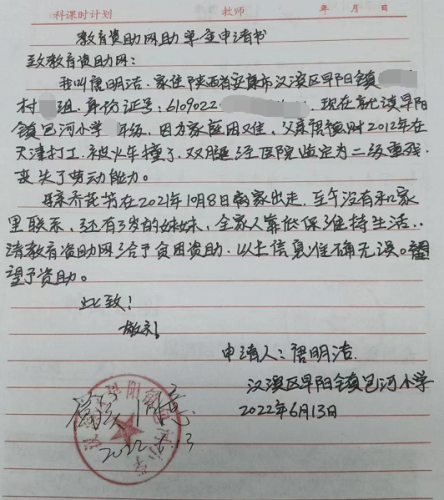 科课时计划 教师 年 月 日
教育资助网助学金申请书
致教育资助网：
我叫唐明洁，家住陕西省安康市汉滨区早阳镇
村 组，身份证号：6109022 ，现在就读早阳
镇包河小学 年级，因为家庭困难，父亲唐德财2012年在
天津打工，被火车撞了，双腿经医院鉴定为二级重残，
丧失了劳动能力。
母亲乔花芳在2021年10月8日离家出走，至今没有和家
里联系，还有3岁的妹妹，全家人靠低保维持生活..
请教育资助网给予贫困资助，以上信息准确无误。希
望予资助。
此致！
敬礼
申请人：唐明洁
汉滨区早阳镇包河小学
2022年6月13日
2022